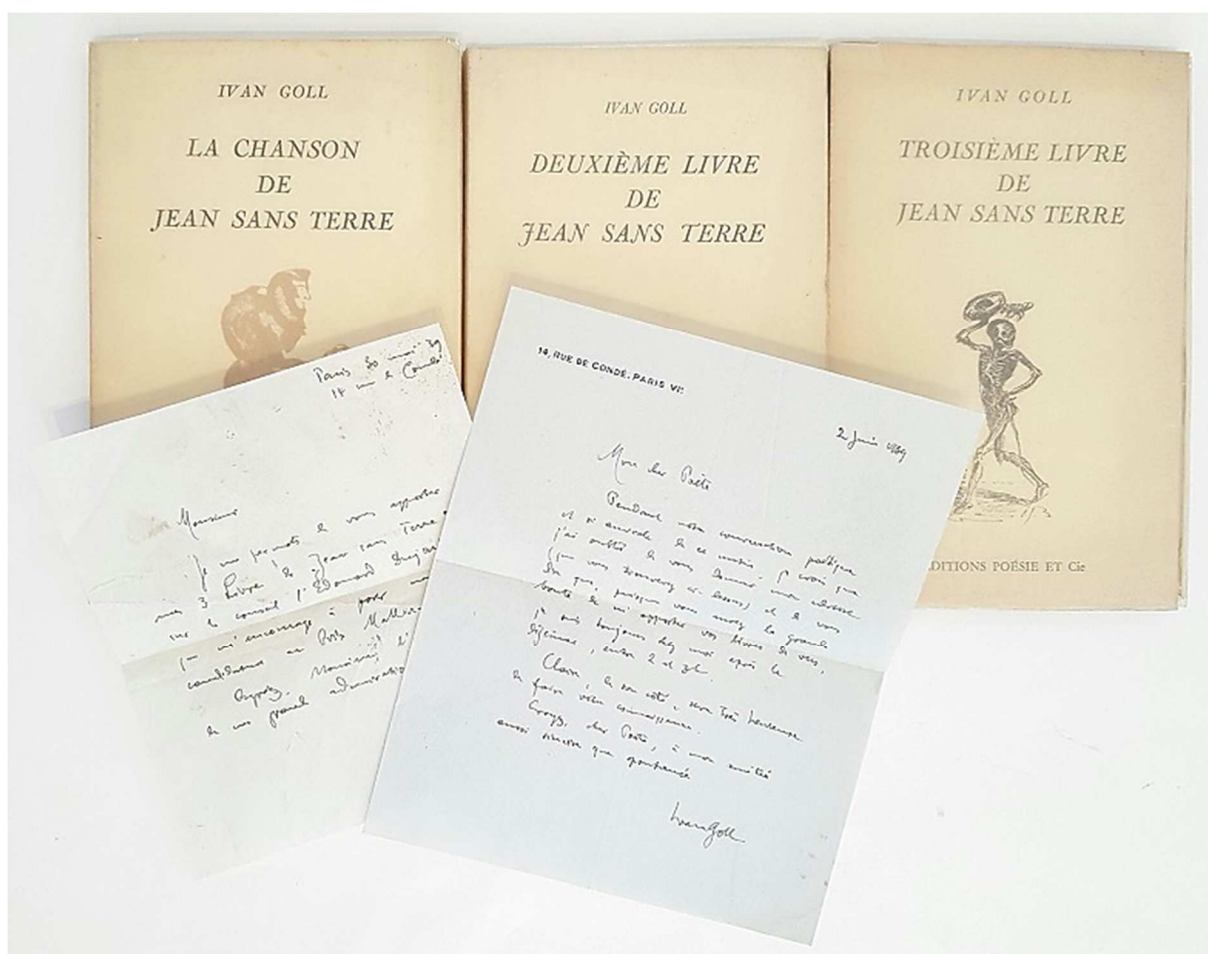 IVAN GOLL
LA CHANSON
DE
JEAN SANS TERRE
IVAN GOLL
DEUXIÈME LIVRE
DE
JEAN SANS TERRE
IVAN GOLL
TROISIÈME LIVRE
DE
JEAN SANS TERRE
EDITIONS POÉSIE ET Cie
Paris 30 mai 39
Monsieur
Je me permets de vous apporter
mes 3 Livres de Jean sans Terre
sur le conseil d'Edouard Dujar
qui m'encourage à poser
candidature au Prix Mallar
Monsieur, l'
de ma grande admiratio
14, RUE DE CONDÉ. PARIS VIe
2 Juin 1939
Mon cher Poète
Pendant notre conversation poétique
et si amicale de ce matin, je crois que
j'ai oublié de vous donner mon adresse
(que vous trouverez ci-dessus) et de vous
dire que, puisque vous avez la grande
bonté de m'apporter vos livres de vers,
je suis toujours chez moi après le
déjeuner, entre 2 et 3h.
Claire, de son côté, sera très heureuse
de faire votre connaissance.
Croyez, cher Poète, à mon amitié
aussi sincère que spontanée
Ivan Goll